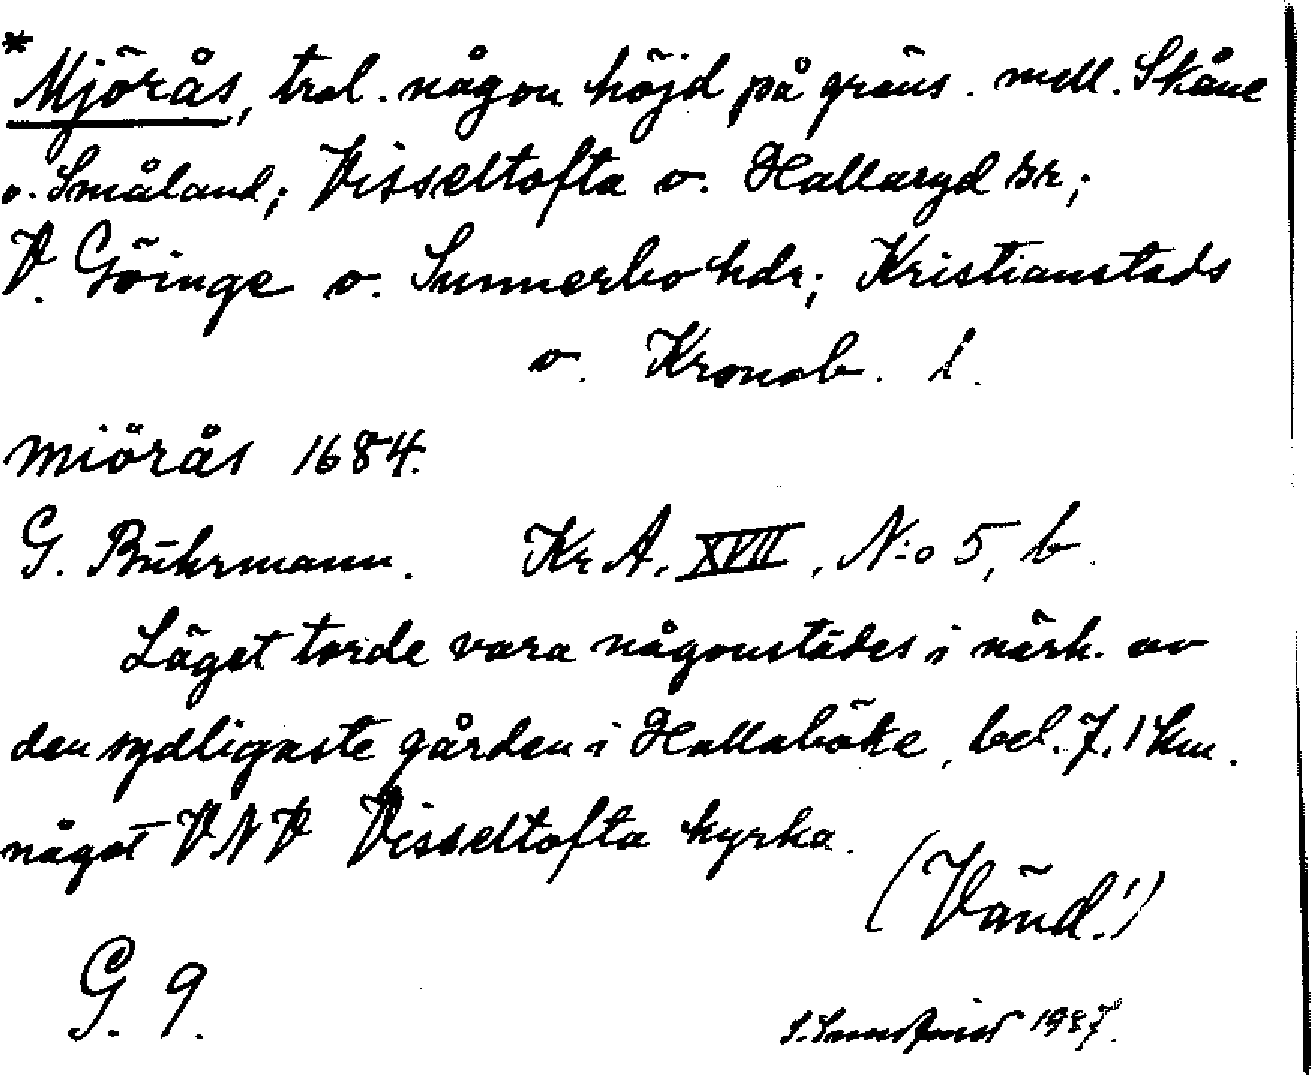 * Mjörås, trol. någon höjd på gräns. mell. Skåne
o. Småland; Visseltofta o. Hallaryd snr;
V. Göinge o. Sunnerbo hdr; Kristianstads
o. Kronob. l.
Miörås 1684.
G. Buhrmann. Kr A. XVII, N:o 5, b.
Läget torde vara någonstädes i närh. av
den sydligaste gården i Hallaböke, bel. 7.1 km.
något VNV Visseltofta kyrka.
(Vänd!)
G. 9.
S. 1937.